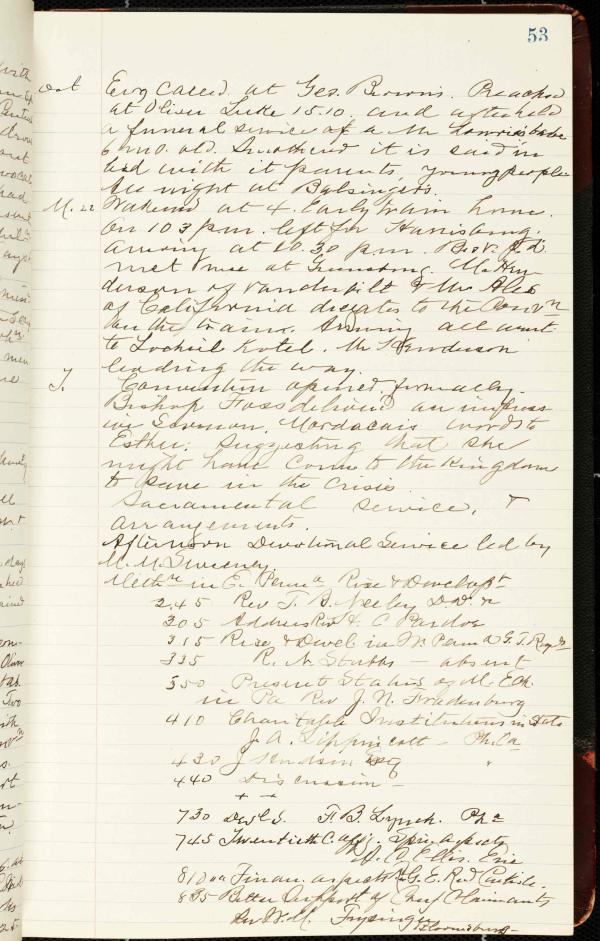 53
Oct Evg called at Geo. Browns. Preached
at Oliver Luke 15.10. and after held
a funeral service of a Mr
6 mo. old. Smothered it is said in
bed with it parents, young people
All night at Balsingers.
M. 22 Wakened at 4. Early train home.
On 103 p.m. left for Harrisburg.
arriving at 10.30 p.m. Bro.
met me at Greensburg. Mr Hen
derson of Vanderbilt & Mr
of California delegates to the Convn
on the train. Arriving all went
to Lochiel Hotel. Mr Henderson
leading the way.
T. Convention opened formally.
Bishop Foss delivered an impress
ive Sermon. Mordacais words to
Esther; suggesting that she
might have come to the Kingdom
to save in the crisis
Sacramental service, +
arrangements.
Afternoon Devotional Service led by
M. M. Sweeney.
Methm in E. Penna Rise & Developt
2.45 Rev T. B. Neeley D.D.
305 Address Rev H. C. Pardoe
315 Rise & Devel. in W. Penna G. T. Reynolds
335 R. N. Stubbs - absent
350 Present Status of M. E. Ch.
in Pa Rev J. N. Fradenburg
410 Charitable Institutions in State
J. A. Lippincott - Phila
430 J Esq "
440 Discussion -
+ +
730 Devl S. F. B. Lynch. Pha
745 Twentieth C. offg. Spir. aspects
A. C. Ellis. Erie
810 Finan. aspects G. E. Reed Carlisle.
835 Better Support of Conf Claimants
Rev W. M. Frysinger Bloomsburg-